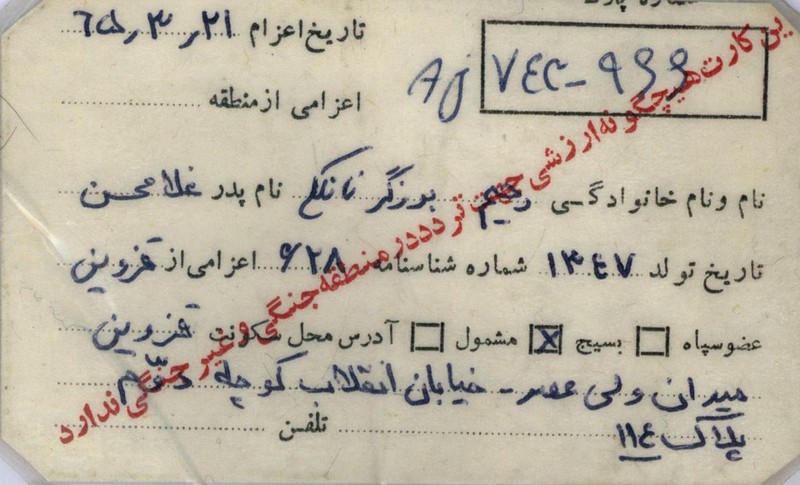 شماره پلاک
تاریخ اعزام ۶۵٫۳٫۲۱
Aj
اعزامی از منطقه
نام و نام خانوادگی رحیم برزگر نانکلی نام پدر غلامحسن
تاریخ تولد ۱۳۴۷ شماره شناسنامه ۶۲۸ اعزامی از قزوین
عضو سپاه بسیج مشمول آدرس محل سکونت قزوین
میدان ولی عصر - خیابان انقلاب کوچه دوم
پلاک ۱۱۴ تلفن
این کارت هیچگونه ارزشی جهت تردد در منطقه جنگی و غیر جنگی ندارد